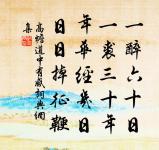 一醉六十日
一裘三十年
年華經幾日
日日掉征鞭
高塘道中有感詞典網
集